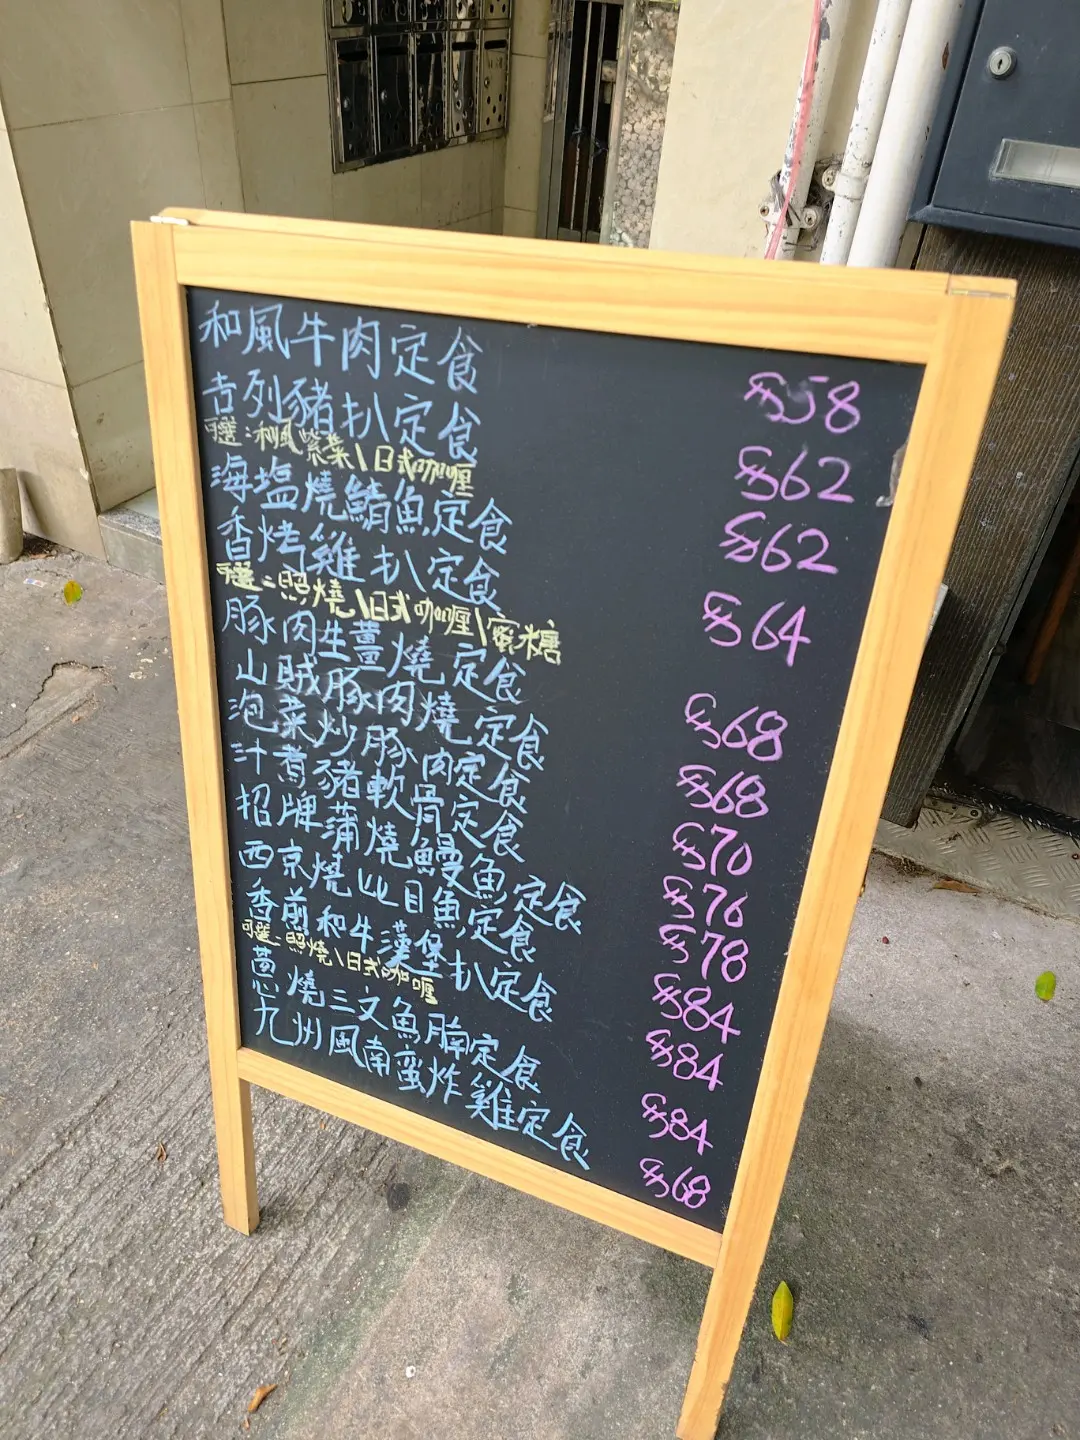 和風牛肉定食 $58
吉列豬扒定食 $62
可選：和風紫菜\日式咖喱
海塩燒鯖魚定食 $62
香烤雞扒定食 $64
可選：照燒\日式咖喱\蜜糖
豚肉生薑燒定食 $68
山賊豚肉燒定食 $68
泡菜炒豚肉定食 $70
汁煮豬軟骨定食 $76
招牌蒲燒鰻魚定食 $78
西京燒比目魚定食 $84
香煎和牛漢堡扒定食 $84
可選：照燒\日式咖喱
蔥燒三文魚腩定食 $84
九州風南蛮炸雞定食 $68